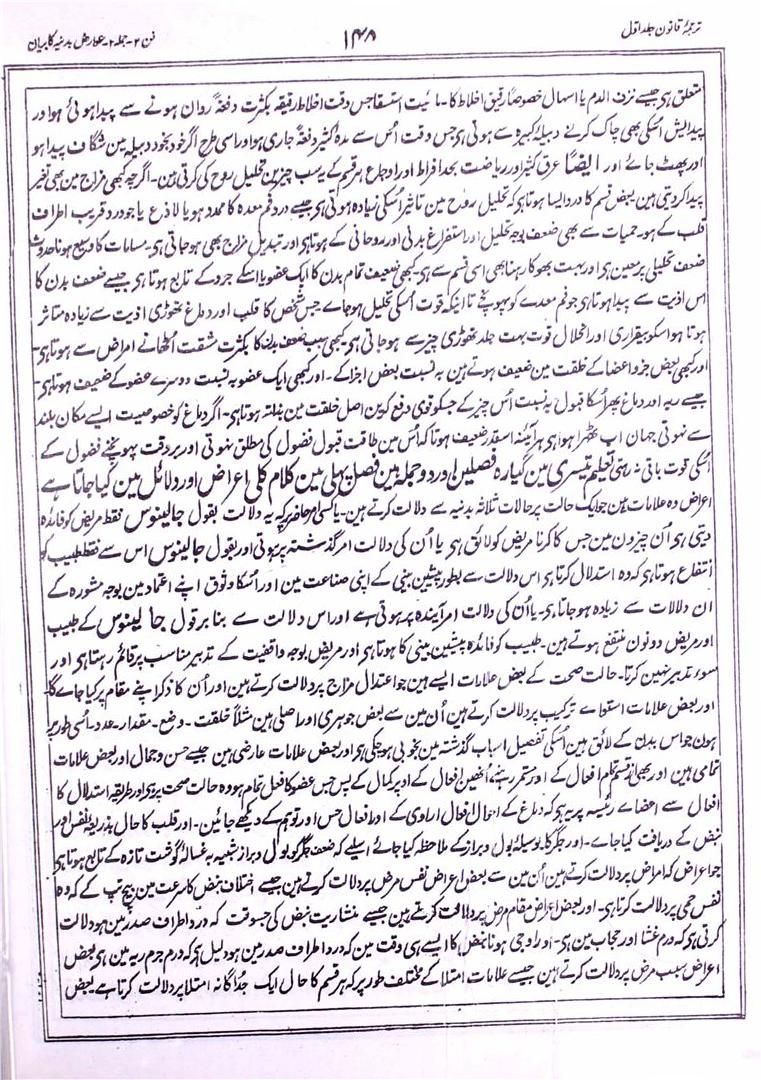 ترجمۂ قانون جلد اول
۱۴۸
فن ۲- جملہ ۲- عوارض بدنیہ کا بیان
متعلق ہی جیسے نزف الدم یا اسہال خصوصاً رقیق اخلاط کا۔ مائیت استسقا جس وقت اخلاط رقیقہ بکثرت دفعۃً روان ہونے سے پیدا ہوئی ہو اور
پیدایش اُسکی بھی چاک کرنے دبیلۂ کبیرہ سے ہوتی ہی جس وقت اُس سے مدہ کثیر دفعۃً جاری ہو اور اسی طرح اگر خود بخود دبیلہ مین شگاف پیدا ہو
اور پھٹ جائے اور ایضاً عرق کثیر اور ریاضت بحد افراط اور اوجاع ہر قسم کے یہ سب چیزین تحلیل روح کی کرتی ہین۔ اگرچہ کبھی مزاج مین بھی تغیر
پیدا کر دیتی ہین۔ بعض قسم کا درد ایسا ہوتا ہی کہ تحلیل روح مین تاثیر اُسکی زیادہ ہوتی ہی جیسے درد فم معدہ کا ممدد ہو یا لاذع یا جو درد قریب اطراف
قلب کے ہو۔ حمیات سے بھی ضعف بوجہ تحلیل اور استفراغ بدنی اور روحانی کے ہوتا ہی اور تبدیل مزاج بھی ہو جاتی ہی۔ مسامات کا وسیع ہونا حدوث
ضعف تحلیلی پر معین ہی اور بہت بھوکا رہنا بھی اسی قسم سے ہی۔ کبھی ضعف تمام بدن کا ایک عضو یا اسکے جزد کے تابع ہوتا ہی جیسے ضعف بدن کا
اس اذیت سے پیدا ہوتا ہی جو فم معدے کو پہونچے تا اینکہ قوت اُسکی تحلیل ہو جاے جس شخص کا قلب اور دماغ تھوڑی اذیت سے زیادہ متاثر
ہوتا ہو اسکو بیقراری اور انحلال قوت بہت جلد تھوڑی چیز سے ہو جاتی ہی۔ کبھی سبب ضعف بدن کا بکثرت مشقت اُٹھانے امراض سے ہوتا ہی۔
اور کبھی بعض جزو اعضا کے خلقت مین ضعیف ہوتے ہین بہ نسبت بعض اجزا کے۔ اور کبھی ایک عضو بہ نسبت دوسرے عضو کے ضعیف ہوتا ہی۔
جیسے ریہ اور دماغ پھر اُسکا قبول بہ نسبت اُس چیز کے جسکو قوی دفع کرین اصل خلقت مین پختہ ہوتا ہی۔ اگر دماغ کو خصوصیت ایسے مکان بلند
سے نہوتی جہان اب ٹھہرا ہوا ہی ہر آئینہ اسقدر ضعیف ہوتا کہ اُس مین طاقت قبول فضول کی مطلق نہوتی اور بر وقت پہونچنے فضول کے
اُسکی قوت باقی نہ رہتی تعلیم تیسری مین گیارہ فصلین اور دو جملہ ہین فصل پہلی مین کلام کلی اعراض اور دلائل مین کیا جاتا ہے
اعراض وہ علامات ہین جو ایک حالت پر حالات ثلاثہ بدنیہ سے دلالت کرتے ہین۔ یا کسی امر حاضر پر کہ یہ دلالت بقول جالینوس فقط مریض کو فائدہ
دیتی ہو اُن چیزون مین جس کا کرنا مریض کو لائق ہی یا اُن کی دلالت امر گذشتہ پر ہوتی اور بقول جالینوس اس سے فقط طبیب کو
انتفاع ہوتا ہی کہ وہ استدلال کرتا ہی اس دلالت سے بطور پیشین بینی کے اپنی صناعت مین اور اُسکا وثوق اپنے اعتماد مین بوجہ مشورہ کے
ان دلالات سے زیادہ ہو جاتا ہی۔ یا اُن کی دلالت امر آیندہ پر ہوتی ہے اور اس دلالت سے بنا بر قول جالینوس کے طبیب
اور مریض دونون منتفع ہوتے ہین۔ طبیب کو فائدہ پیشین بینی کا ہوتا ہی اور مریض بوجہ واقفیت کے تدبیر مناسب پر قائم رہتا ہی اور
سوء تدبیر نہین کرتا۔ حالت صحت کے بعض علامات ایسے ہین جو اعتدال مزاج پر دلالت کرتے ہین اور اُن کا ذکر اپنے مقام پر کیا جاے گا
اور بعض علامات استواے ترکیب پر دلالت کرتے ہین اُن مین سے بعض جوہری اور اصلی ہین مثلاً خلقت۔ وضع۔ مقدار۔ عدد۔ اسی طور پر
ہون جو اس بدن کے لائق ہین اُسکی تفصیل اسباب گذشتہ مین بخوبی ہو چکی ہی اور بعض علامات عارضی ہین جیسے حسن و جمال اور بعض علامات
تمامی ہین اور بعضی از قسم تمام افعال کے اور مستمر رہنے انھین افعال کے اوپر کمال کے پس جس عضو کا فعل تمام ہو وہ حالت صحت پر ہی اور طریقہ استدلال کا
افعال سے اعضاے رئیسہ پر یہ ہی کہ دماغ کے احوال افعال ارادی کے اور افعال حس اور توہم کے دیکھے جائین۔ اور قلب کا حال بذریعہ تنفس اور
نبض کے دریافت کیا جاے۔ اور جگر کا بوسیلہ بول و براز کے ملاحظہ کیا جائے اسیلے کہ ضعف جگر کو بول و براز شبیہ بہ غسالہ گوشت تازہ کے تابع ہوتا ہی
جو اعراض کہ امراض پر دلالت کرتے ہین اُن مین سے بعض اعراض نفس مرض پر دلالت کرتے ہین جیسے اختلاف نبض کا سرعت مین بیچ تپ کے کہ وہ
نفس حمی پر دلالت کرتا ہی۔ اور بعض اعراض مقام مرض پر دلالت کرتے ہین جیسے منشاریت نبض کی جسوقت کہ درد اطراف صدر مین ہو دلالت
کرتی ہی کہ ورم غشا اور حجاب مین ہی۔ اور موجی ہونا نبض کا ایسے ہی وقت مین کہ درد اطراف صدر مین ہو دلیل ہی کہ ورم جرم ریہ مین ہی بعض
اعراض سبب مرض پر دلالت کرتے ہین جیسے علامات امتلا کے مختلف طور پر کہ ہر قسم کا حال ایک جداگانہ امتلا پر دلالت کرتا ہے بعض